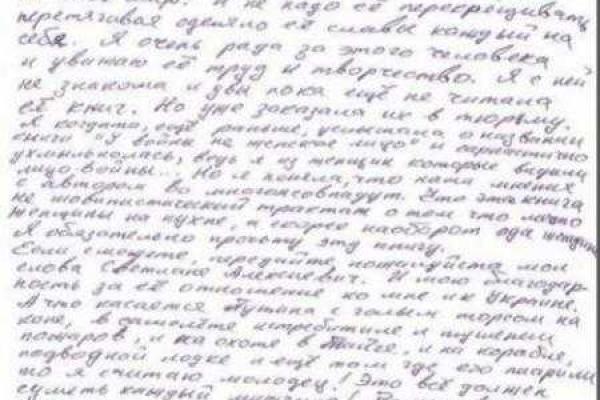 и не надо её перекрещивать
перетягивая одеяло её славы каждый на
себя. Я очень рада за этого человека
и уважаю её труд и творчество. Я с ней
не знакома и увы пока ещё не читала
её книг. Но уже заказала их в тюрьму.
Я когда-то, ещё раньше, услышала о названии
книги "У войны не женское лицо" и саркастично
ухмыльнулась, ведь я из женщин которые видили
лицо войны... Но я поняла, что наши мнения
с автором во многом совпадут. Что эта книга
не шовинистический трактат о том что место
женщины на кухне, а скорее наоборот ода женщине
Я обязательно прочту эту книгу.
Если сможете, передайте, пожалуйста мои
слова Светлане Алексиевич. И мою благодар-
ность за её отношение ко мне и к Украине.
А что касается Путина с голым торсом на
коне, в самолёте истребителе и тушении
пожаров, и на охоте в тайге, и на корабле,
подводной лодке и ещё там где его пиарили
то я считаю молодец! Это всё должен
суметь каждый мужчина!